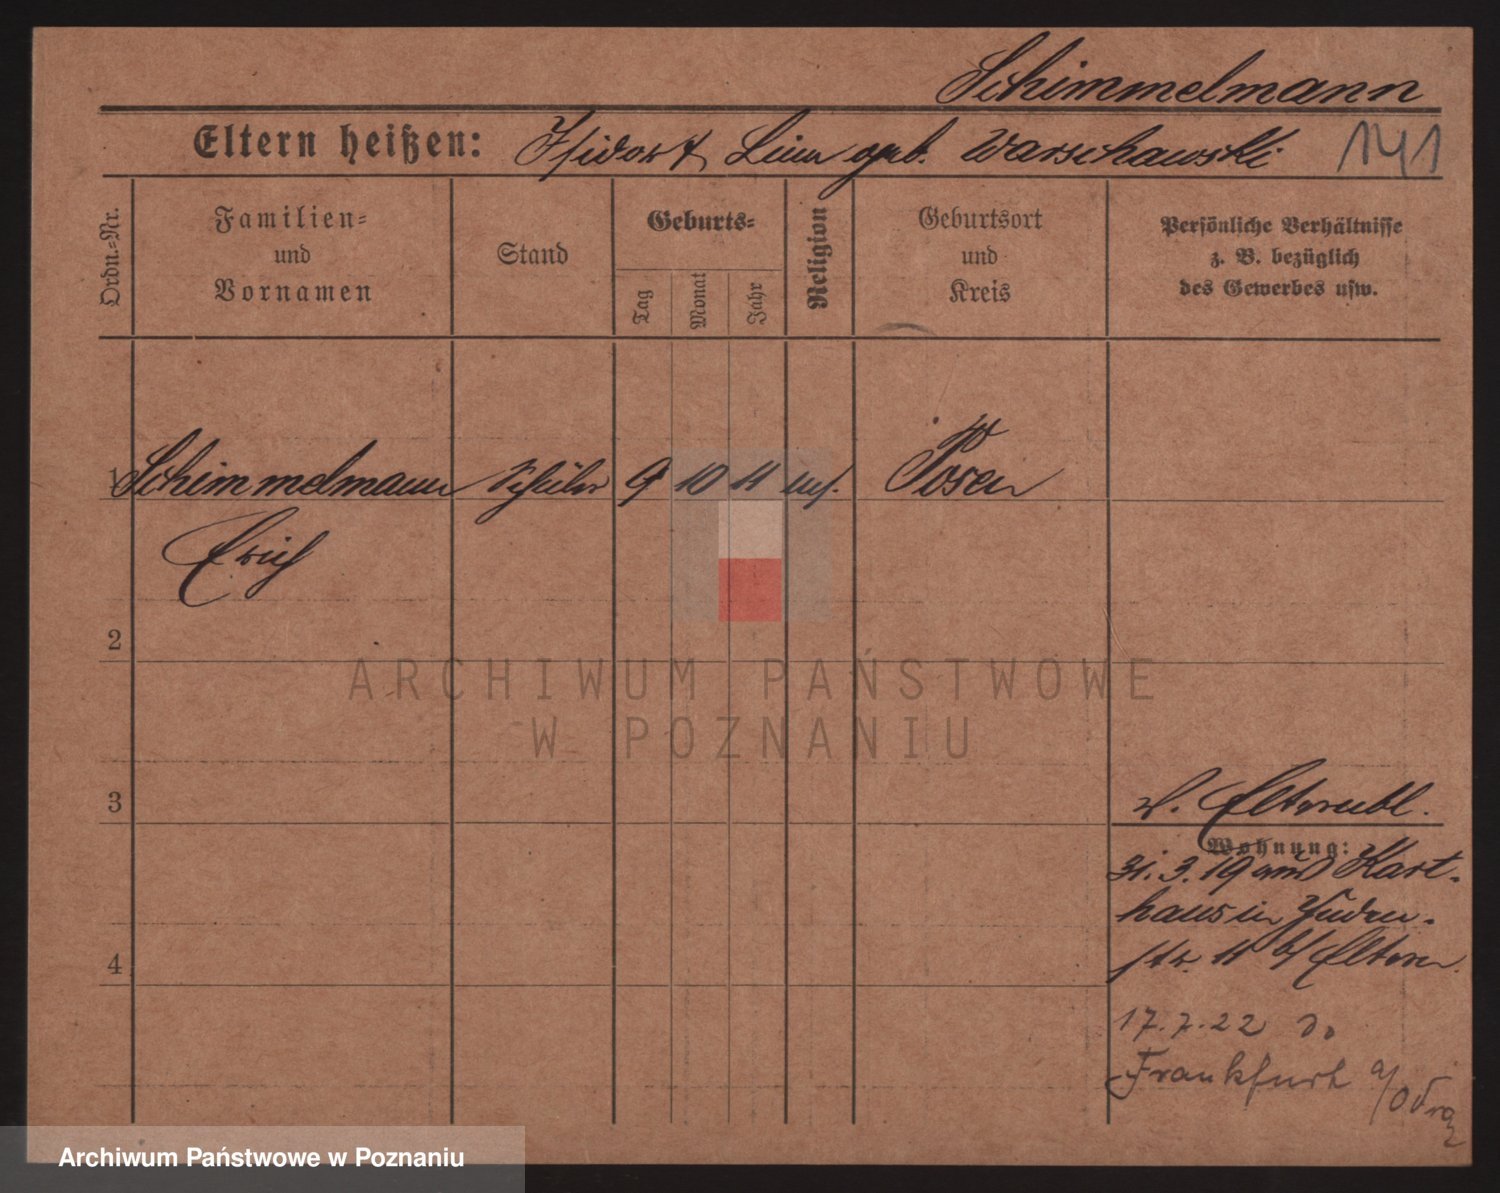 Schimmelmann
Eltern heißen: Isidor & Lina geb. Warschawski 141
Ordn.-Nr.
Familien-
und
Vornamen
Stand
Geburts-
Tag
Monat
Jahr
Religion
Geburtsort
und
Kreis
Persönliche Verhältnisse
z. B. bezüglich
des Gewerbes usw.
1 Schimmelmann Schüler 9 10 11 mos. Posen
Erich
2
ARCHIWUM PAŃSTWOWE
W POZNANIU
3
s. Elternbl.
Wohnung:
31.3.19 aus Kart-
haus in Juden-
str. 11 b/ Eltern.
4
17.7.22
Frankfurt a/Oder
Archiwum Państwowe w Poznaniu